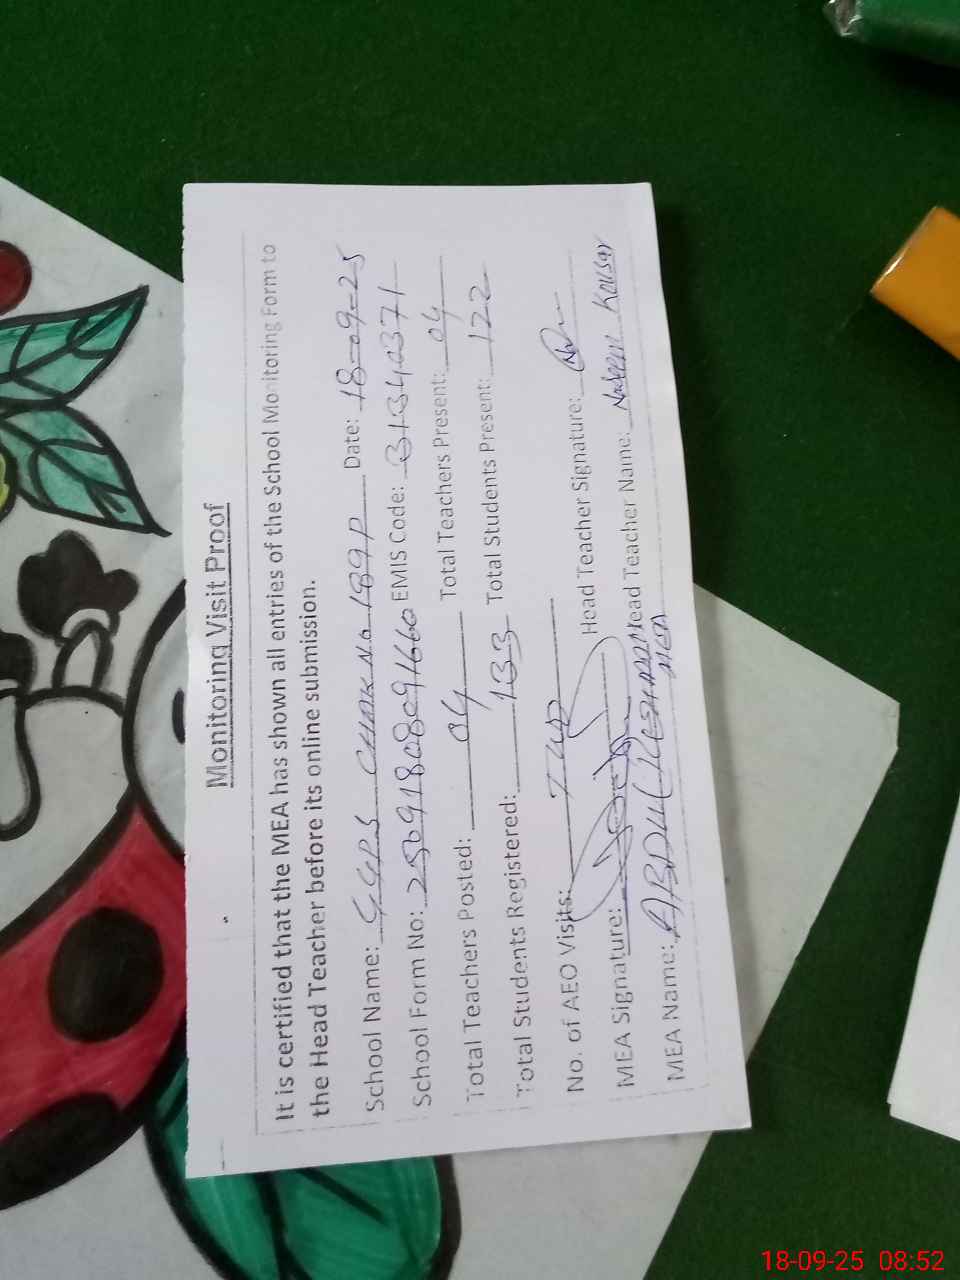 Monitoring Visit Proof
It is certified that the MEA has shown all entries of the School Monitoring Form to
the Head Teacher before its online submission.
School Name: GGPS CHAK No 189P Date: 18-09-25
School Form No: 25091808091660 EMIS Code: 31340371
Total Teachers Posted: 04 Total Teachers Present: 04
Total Students Registered: 133 Total Students Present: 122
No. of AEO Visits:
MEA Signature: Head Teacher Signature:
MEA Name: ABDUL Head Teacher Name: Naseem Kousar
MEA
18-09-25 08:52